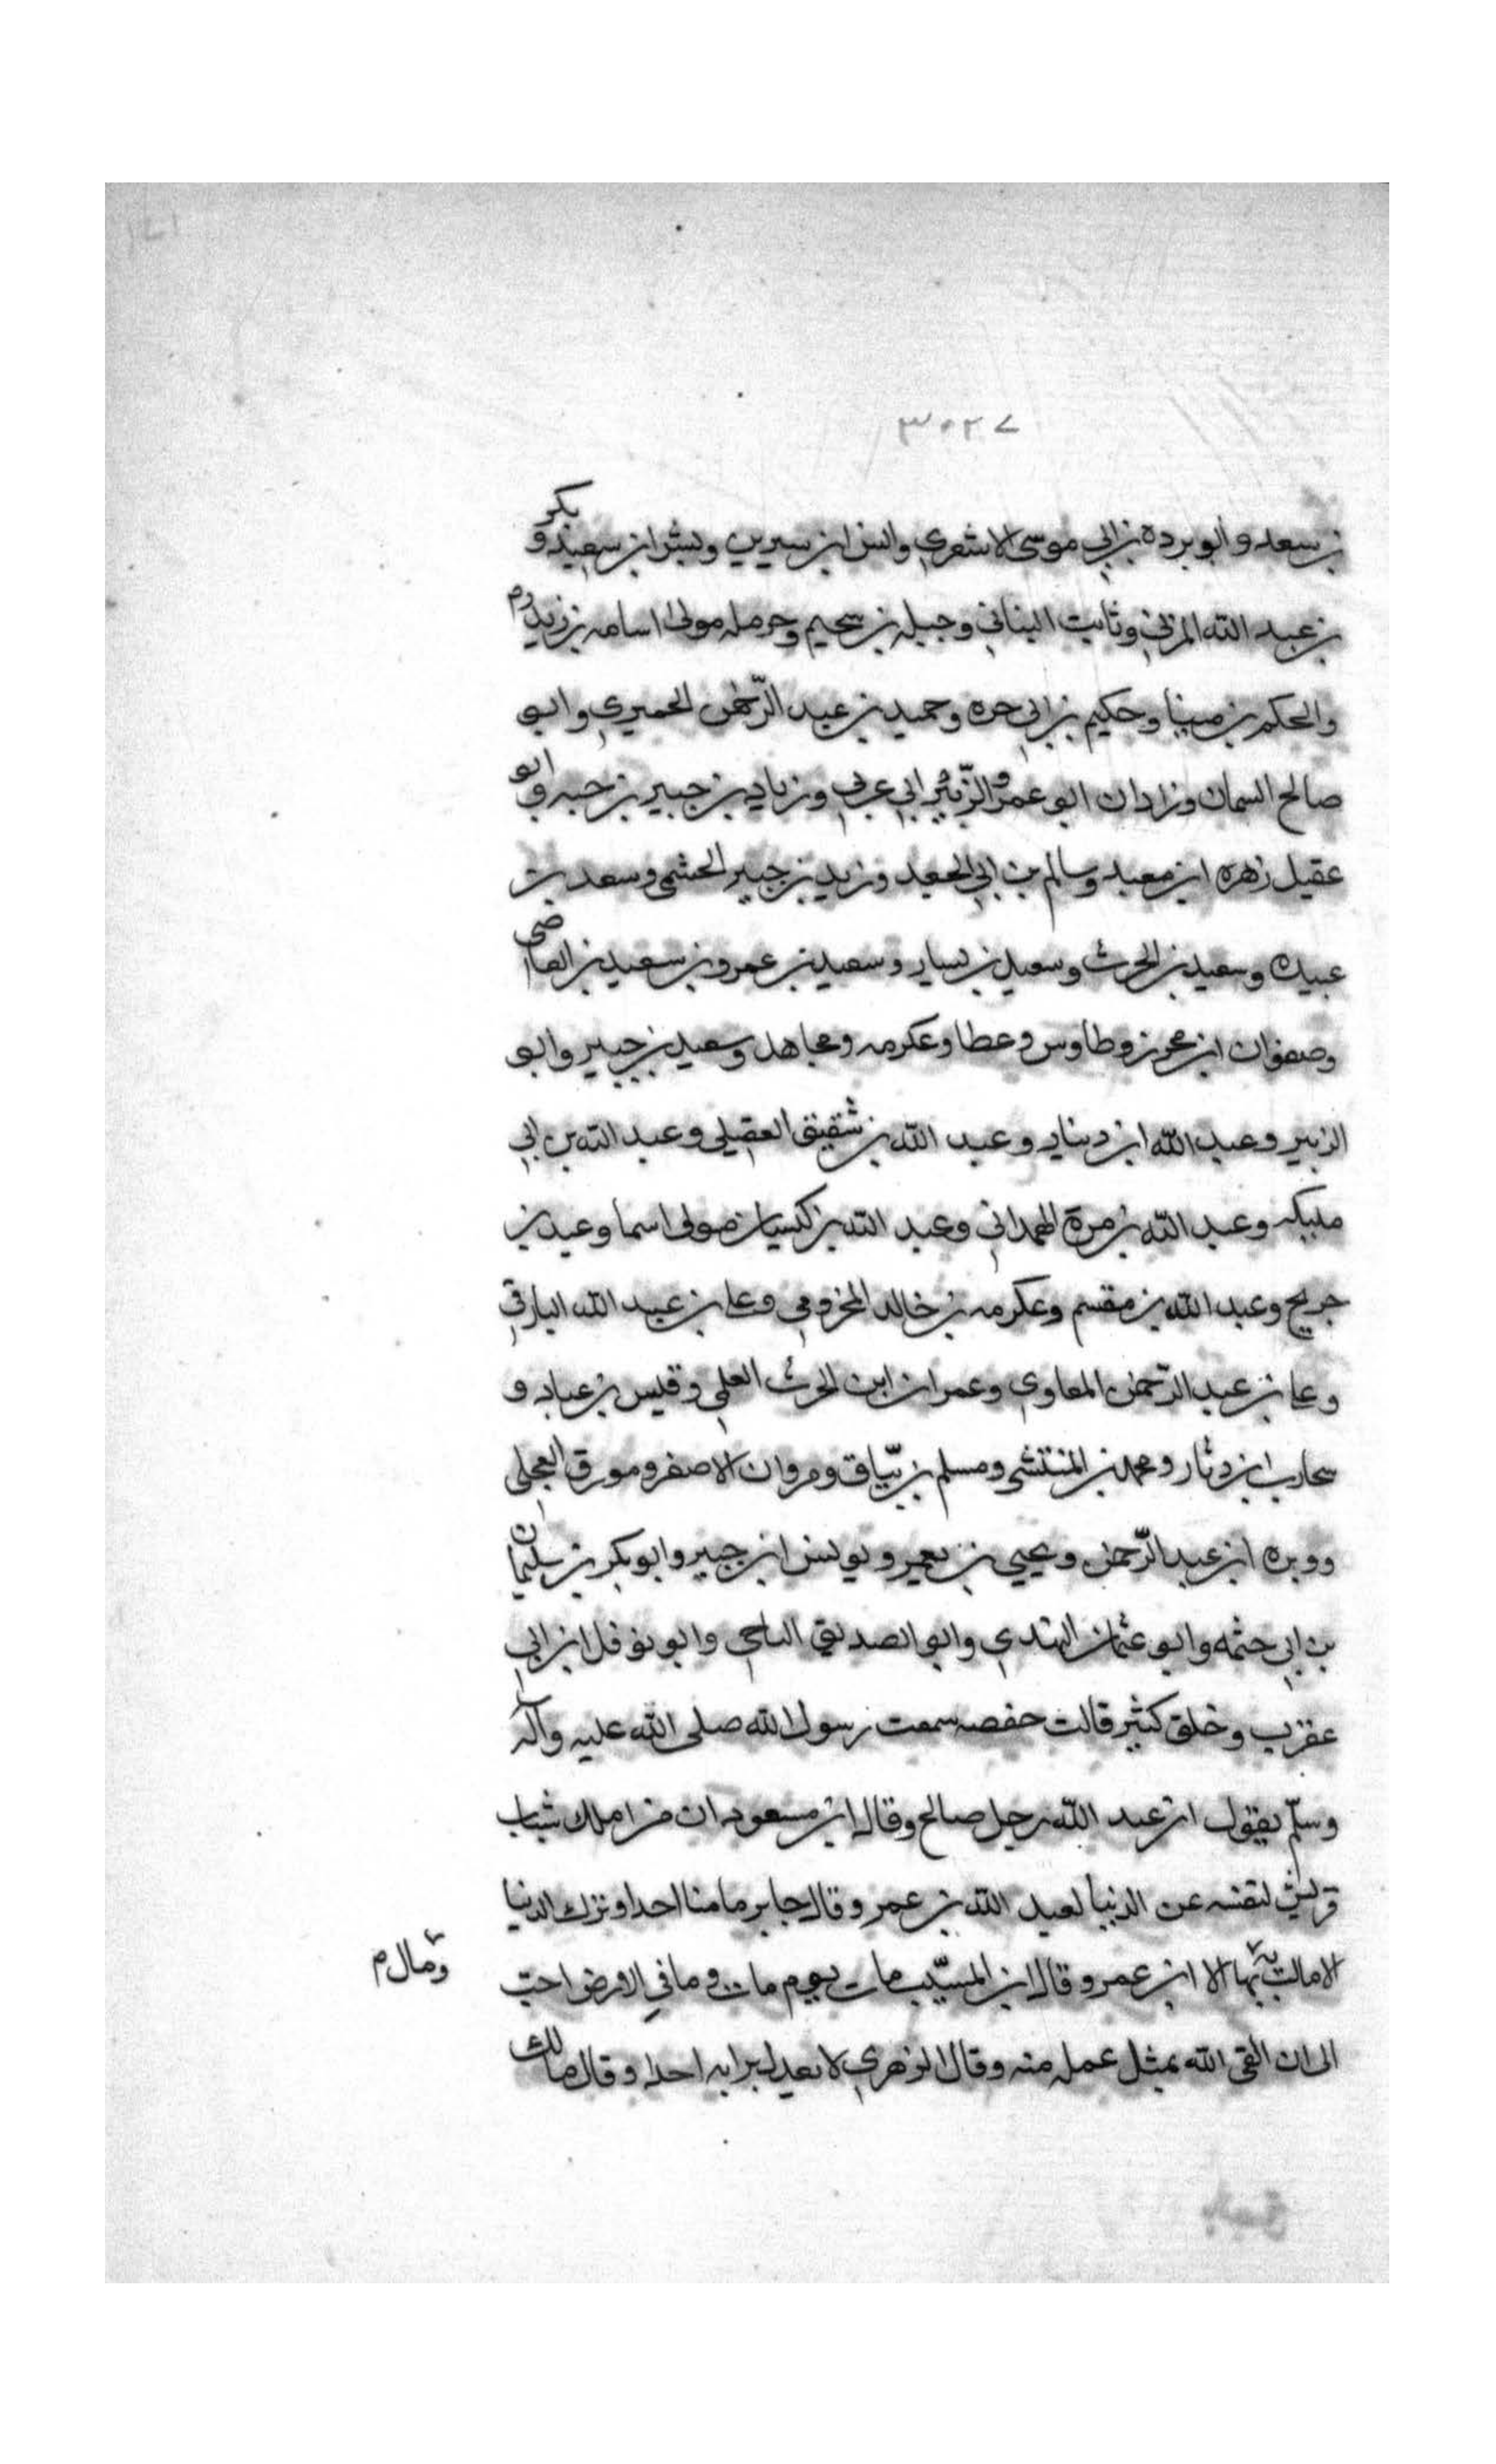 ٣٠٢٧
بن سعد وابو بردة بن ابي موسى الاشعري وانس ابن سيرين وبشر ابن سعيد وبكر
بن عبد الله المزني وثابت البناني وجبله بن سحيم وحرمله مولى اسامه بن زيد م
والحكم بن مينا وحكيم بن ابي حره وحميد بن عبد الرحمن الحميري وابو
صالح السمان وزادان ابو عمر والزبير ابي عربي وزياد بن جبير بن حبه وابو
عقيل زهره ابن معبد وسالم بن ابي الجعد وزيد بن جبير الحشمي وسعد بن
عبيده وسعيد بن الحرث وسعيد بن يسار وسعيد بن عمرو بن سعيد بن العاصي
وصفوان ابن محرز وطاوس وعطا وعكرمه ومجاهد وسعيد بن جبير وابو
الزبير وعبد الله ابن دينار وعبد الله بن شقيق العقيلي وعبد الله بن ابي
مليكه وعبد الله بن مرة الهمداني وعبد الله بن كيسان مولى اسما وعبيد بن
جريح وعبد الله بن مقسم وعكرمه بن خالد المخزومي وعلى بن عبد الله البارقي
وعلى بن عبد الرحمن المعاوي وعمران ابن الحرث العلمي وقيس بن عباد و
محارب ابن دثار ومحمد بن المنتشى ومسلم بن يّاق ومروان الاصفر ومورق العجلي
ووبره ابن عبد الرحمن ويحيي بن يعمير ويونس ابن جبير وابو بكر بن سليمان
بن ابي حثمه وابو عثمان النهدي وابو الصديق الناجي وابو نوفل ابن ابي
عقرب وخلق كثير قالت حفصه سمعت رسول الله صلى الله عليه وآله
وسلّم يقول ان عبد الله رجل صالح وقال ابن مسعود ان من املك شباب
قريش لنفسه عن الدنيا لعبد الله بن عمر وقال جابر ما منا احدا وترك الدنيا
الا مالت به بها الا ابن عمر وقال ابن المسيّب مات يوم مات وما في الارض احبّ
ومال م
الى ان القى الله بمثل عمله منه وقال الزهري لا يعدل برايه احدا وقال مالك